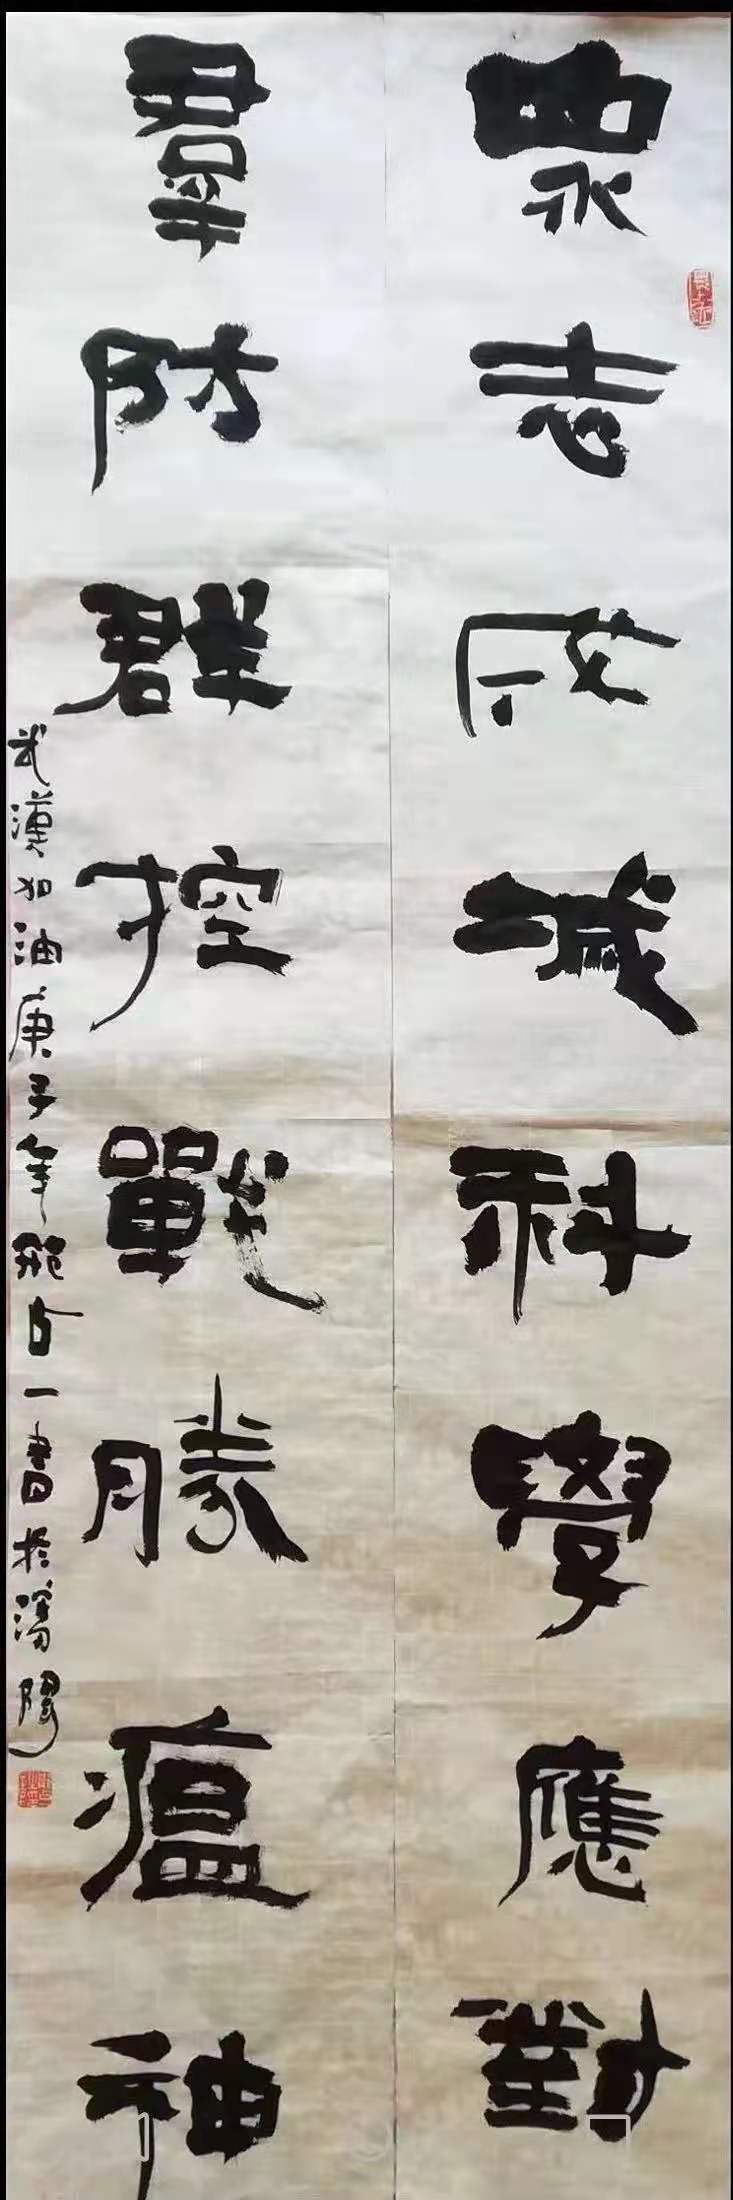 眾志成城科學應對
羣防群控戰勝瘟神
武漢加油庚子年鮑占一書於潯陽